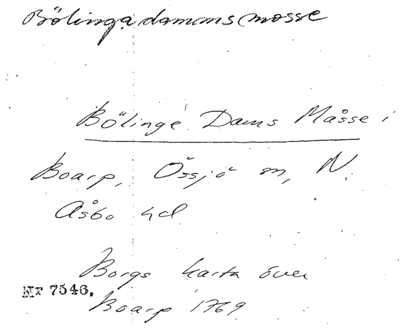 Bölinga dammsmosse
Bölinge Dams Måsse i
Boarp, Össjö sn, N.
Åsbo hd
Borgs karta över
Nr 7546.
Boarp 1769